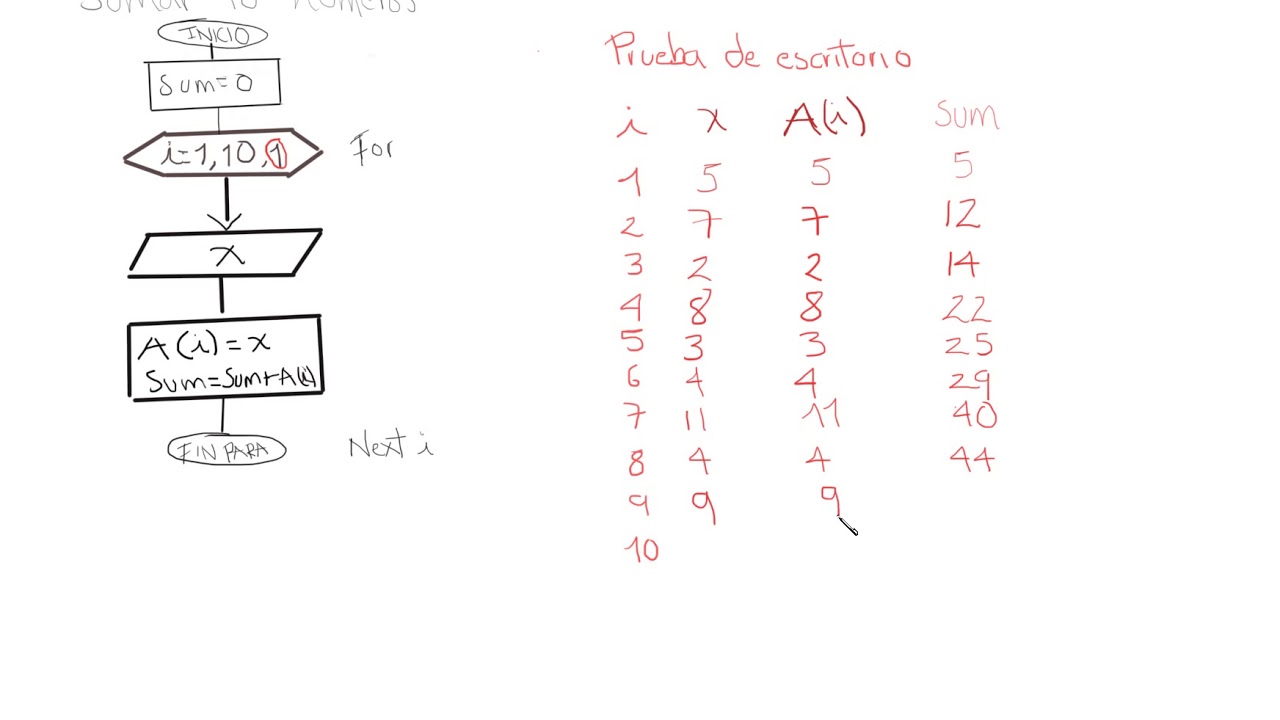 Sumar 10 números
INICIO
Sum=0
i=1,10,1
For
x
A(i)=x
Sum=Sum+A(i)
FIN PARA
Next i
Prueba de escritorio
i x A(i) Sum
1 5 5 5
2 7 7 12
3 2 2 14
4 8 8 22
5 3 3 25
6 4 4 29
7 11 11 40
8 4 4 44
9 9 9
10